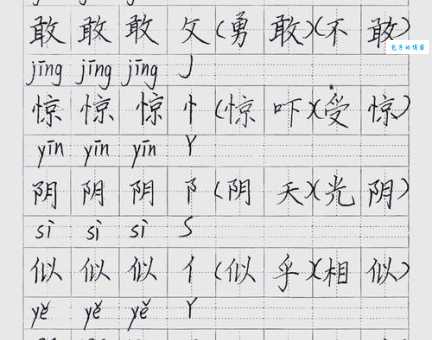 敢 敢 敢 攵 (勇 敢)(不 敢)
jīng jīng jīng J
惊 惊 惊 忄 (惊 吓)(受 惊)
yīn yīn yīn Y
阴 阴 阴 阝 (阴 天)(光 阴)
sì sì sì S
似 似 似 亻 (似 乎)(相 似)
yě yě yě Y